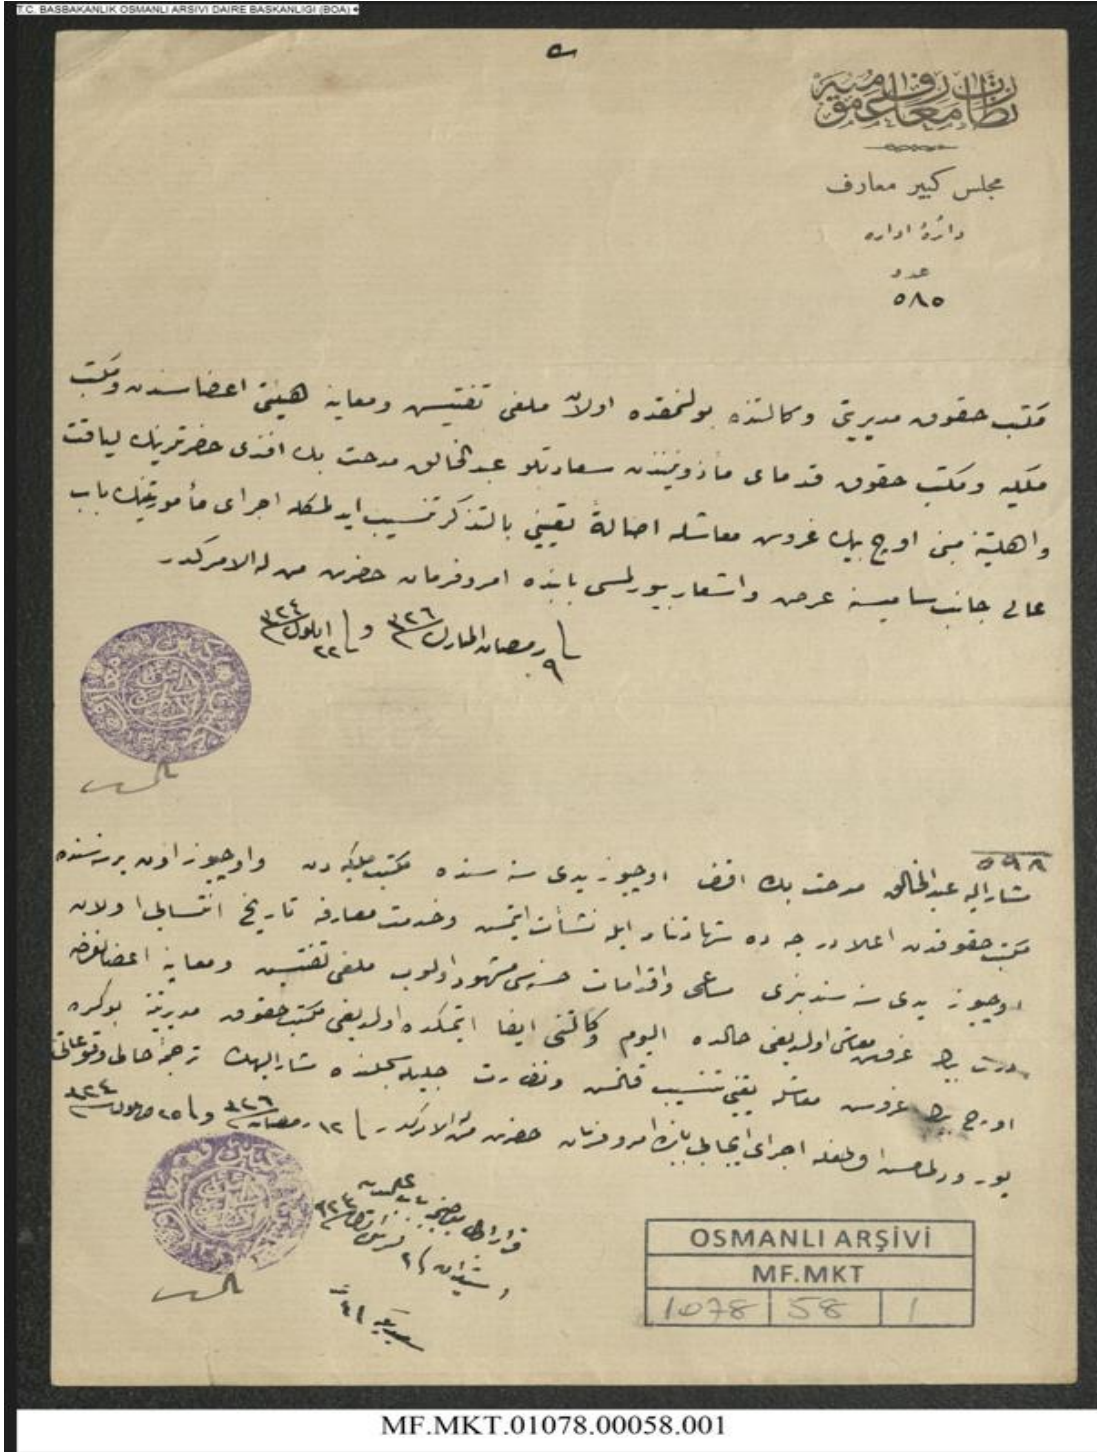 T.C. BASBAKANLIK OSMANLI ARSIVI DAIRE BASKANLIGI (BOA)
نظارت معارف عمومیه
مجلس کبیر معارف
دائرۀ اداره
عدد
٥٨٥
مکتب حقوق مدیریتی وکالتنده بولنمقده اولان ملغی تفتیش ومعاینه هیئتی اعضاسندن ومکتب
ملکیه ومکتب حقوق قدمای مأذونیندن سعادتلو عبدالخالق مدحت بك افندی حضرتلرینك لیاقت
واهلیتنه مبنی اوچ بیك غروش معاشله اصالةً تعیینی بالتذکر تنسیب ایدلمکله اجرای مأموریتنك باب
عالی جانب سامیسنه عرض واشعار بیورلمسی بابنده امر وفرمان حضرت من له الامرکدر
٩ رمضان المبارك ٣٢٦ و ٢٢ ایلول ٣٢٤
٥٩٨
مشارالیه عبدالخالق مدحت بك افندی اوچیوز یدی سنه سنده مکتب ملکیه دن واوچیوز اون بر سنه سنده
مکتب حقوقدن اعلا درجه ده شهادتنامه ایله نشأت ایتمش وخدمت معارفه تاریخ انتسابی اولان
اوچیوز یدی سنه سندنبری مساعی واقدامات حسنه سی مشهود اولوب ملغی تفتیش ومعاینه اعضالغنه
درت بیك غروش معاشی اولدیغی حالده الیوم وکالتنی ایفا ایتمکده اولدیغی مکتب حقوق مدیریتنه بوکره
اوچ بیك غروش معاشله تعیینی تنسیب قلنمش ونظارت جلیله سجلنده مشارالیهك ترجمۀ حالی وقوعاتی
اجرای ایجابی بابنده امر وفرمان حضرت من له الامرکدر ١٢ رمضان ٣٢٦ و ٢٥ ایلول ٣٢٤
OSMANLI ARŞİVİ
MF.MKT
1078 58 1
MF.MKT.01078.00058.001